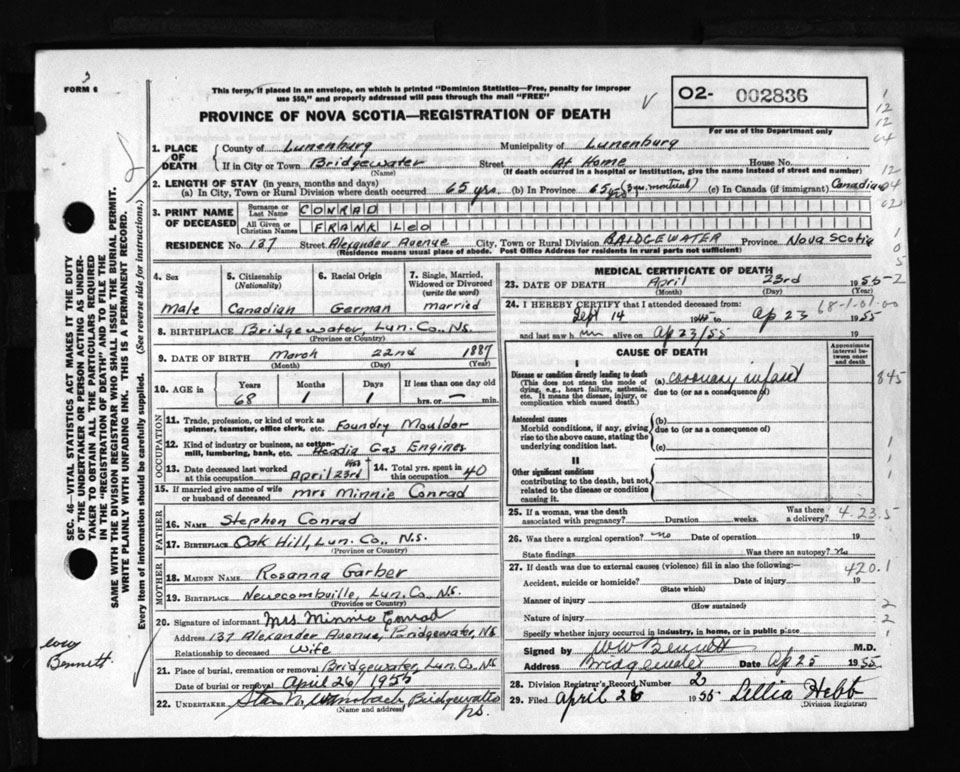 3
FORM 6
This form, if placed in an envelope, on which is printed "Dominion Statistics—Free, penalty for improper
use $50," and properly addressed will pass through the mail "FREE"
PROVINCE OF NOVA SCOTIA—REGISTRATION OF DEATH
O2- 002836
For use of the Department only
1. PLACE OF DEATH
County of Lunenburg Municipality of Lunenburg
If in City or Town Bridgewater Street At Home House No.
(Name) (If death occurred in a hospital or institution, give the name instead of street and number)
2. LENGTH OF STAY (in years, months and days)
(a) In City, Town or Rural Division where death occurred 65 yrs. (b) In Province 65 yrs (c) In Canada (if immigrant) Canadian
3. PRINT NAME OF DECEASED
Surname or Last Name CONRAD
All Given or Christian Names FRANK LEO
RESIDENCE No. 137 Street Alexander Avenue City, Town or Rural Division BRIDGEWATER Province Nova Scotia
(Residence means usual place of abode. Post Office Address for residents in rural parts not sufficient)
4. Sex
Male
5. Citizenship (Nationality)
Canadian
6. Racial Origin
German
7. Single, Married, Widowed or Divorced (write the word)
married
8. BIRTHPLACE Bridgewater, Lun. Co., N.S.
(Province or Country)
9. DATE OF BIRTH March 22nd 1887
(Month) (Day) (Year)
10. AGE in Years Months Days If less than one day old
68 1 1 hrs. or — min.
OCCUPATION
11. Trade, profession, or kind of work as spinner, teamster, office clerk, etc. Foundry Moulder
12. Kind of industry or business, as cotton-mill, lumbering, bank, etc. Acadia Gas Engines
13. Date deceased last worked at this occupation April 23rd
14. Total yrs. spent in this occupation 40
15. If married give name of wife or husband of deceased Mrs Minnie Conrad
FATHER
16. NAME Stephen Conrad
17. BIRTHPLACE Oak Hill, Lun. Co., N.S.
(Province or Country)
MOTHER
18. MAIDEN NAME Rosanna Garber
19. BIRTHPLACE Newcombville, Lun. Co., N.S.
(Province or Country)
20. Signature of informant Mrs. Minnie Conrad
Address 137 Alexander Avenue, Bridgewater, NS
Relationship to deceased Wife
21. Place of burial, cremation or removal Bridgewater, Lun. Co., NS
Date of burial or removal April 26, 1955
22. UNDERTAKER Bridgewater
(Name and address) NS.
MEDICAL CERTIFICATE OF DEATH
23. DATE OF DEATH April 23rd 1955
(Month) (Day) (Year)
24. I HEREBY CERTIFY that I attended deceased from:
Sept 14 to Ap 23 1955
and last saw him alive on Ap 23/55 19
68-1.01.00
CAUSE OF DEATH
Approximate interval between onset and death
I
Disease or condition directly leading to death
(This does not mean the mode of dying, e.g., heart failure, asthenia, etc. It means the disease, injury, or complication which caused death.)
(a) coronary infarct
due to (or as a consequence of)
Antecedent causes
Morbid conditions, if any, giving rise to the above cause, stating the underlying condition last.
(b)
due to (or as a consequence of)
(c)
II
Other significant conditions
contributing to the death, but not related to the disease or condition causing it.
25. If a woman, was the death associated with pregnancy? Duration weeks. Was there a delivery?
4.23.5
26. Was there a surgical operation? no Date of operation 19
State findings Was there an autopsy? No
27. If death was due to external causes (violence) fill in also the following:
420.1
Accident, suicide or homicide? Date of injury 19
(State which)
Manner of injury
(How sustained)
Nature of injury
Specify whether injury occurred in industry, in home, or in public place
Signed by W W Bennett M.D.
Address Bridgewater Date Ap 25 1955
28. Division Registrar's Record Number 2
29. Filed April 26 1955 Lellia Hebb
(Division Registrar)
845
SEC. 46—VITAL STATISTICS ACT MAKES IT THE DUTY
OF THE UNDERTAKER OR PERSON ACTING AS UNDER-
TAKER TO OBTAIN ALL THE PARTICULARS REQUIRED
IN THE "REGISTRATION OF DEATH" AND TO FILE THE
SAME WITH THE DIVISION REGISTRAR WHO SHALL ISSUE THE BURIAL PERMIT.
WRITE PLAINLY WITH UNFADING INK. THIS IS A PERMANENT RECORD.
Every item of information should be carefully supplied. (See reverse side for instructions.)
Bennett.